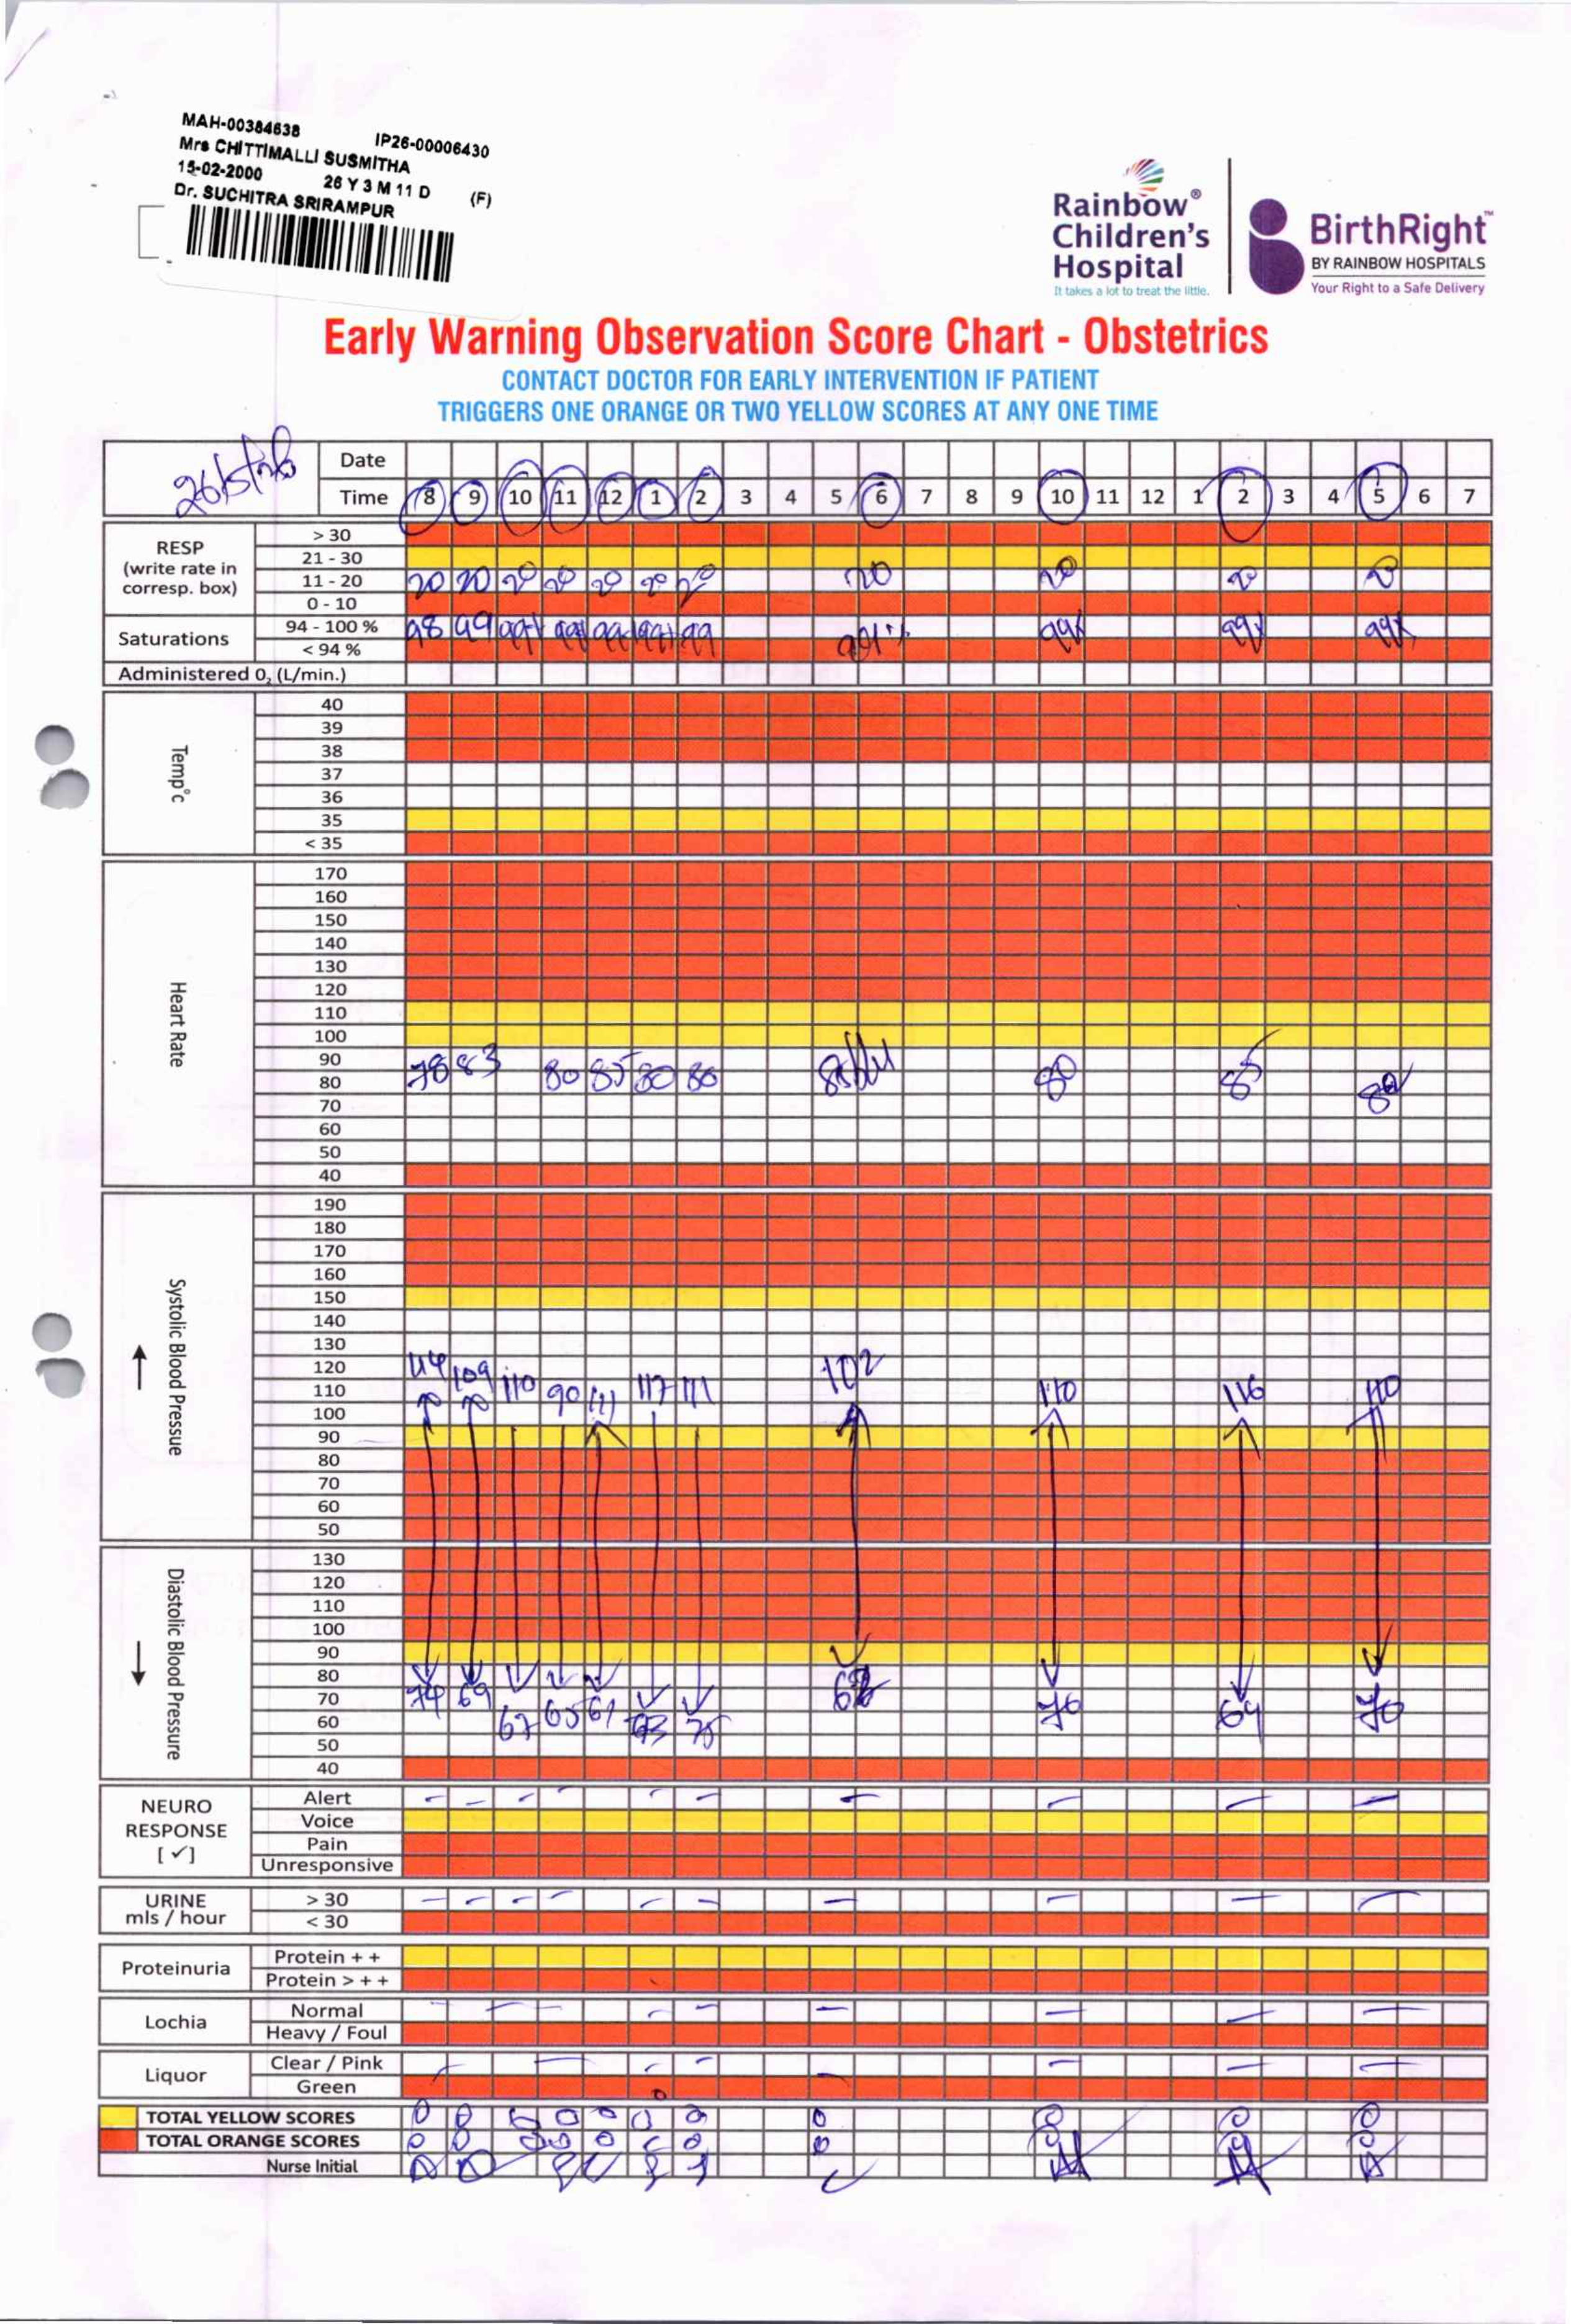 MAH-00384638 IP26-00006430
Mrs CHITTIMALLI SUSMITHA
15-02-2000 26 Y 3 M 11 D (F)
Dr. SUCHITRA SRIRAMPUR
Rainbow® Children's Hospital
It takes a lot to treat the little.
BirthRight™
BY RAINBOW HOSPITALS
Your Right to a Safe Delivery
Early Warning Observation Score Chart - Obstetrics
CONTACT DOCTOR FOR EARLY INTERVENTION IF PATIENT
TRIGGERS ONE ORANGE OR TWO YELLOW SCORES AT ANY ONE TIME
26/5/26 Date
Time 8 9 10 11 12 1 2 3 4 5 6 7 8 9 10 11 12 1 2 3 4 5 6 7
RESP (write rate in corresp. box)
> 30
21 - 30
11 - 20 20 20 20 20 20 20 20 20 20 20 20
0 - 10
Saturations
94 - 100 % 98 99 99% 99% 99 99 99 99% 99% 99% 99%
< 94 %
Administered 0₂ (L/min.)
Temp°c
40
39
38
37
36
35
< 35
Heart Rate
170
160
150
140
130
120
110
100
90
80 78 83 80 85 80 86 80 85 82
70
60
50
40
Systolic Blood Pressue
190
180
170
160
150
140
130
120 114 109 102
110 110 90 111 117 111 110 116 110
100
90
80
70
60
50
Diastolic Blood Pressure
130
120
110
100
90
80
70 74 69 70 69 70
60 67 65 61 75
50
40
NEURO RESPONSE [ ✓ ]
Alert
Voice
Pain
Unresponsive
URINE mls / hour
> 30
< 30
Proteinuria
Protein + +
Protein > + +
Lochia
Normal
Heavy / Foul
Liquor
Clear / Pink
Green
TOTAL YELLOW SCORES 0 0 0 0 0 0 0 0 0 0 0
TOTAL ORANGE SCORES 0 0 0 0 0 0 0 0 0 0
Nurse Initial